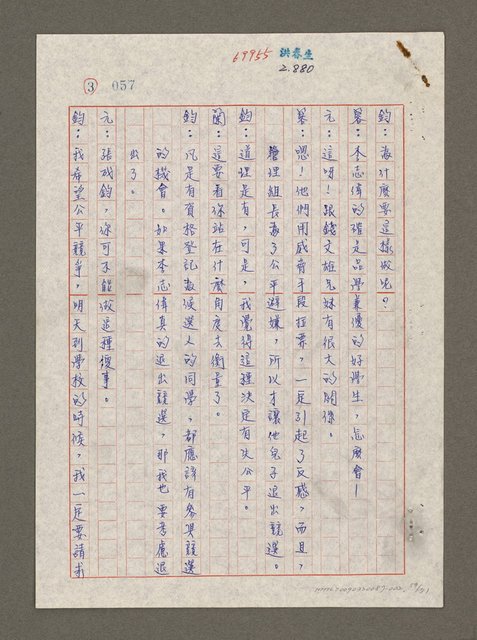 69955 洪春生
2.880
③ 057
鈞：為什麼要這樣做呢？
馨：李志偉的確是品學兼優的好學生，怎麼會｜
元：這呀！跟錢文雄兄妹有很大的關係。
馨：嗯！他們用威脅手段拉票，一定引起了反感，而且，
管理組長為了公平避嫌，所以才讓他兒子退出競選。
鈞：道理是有，可是，我覺得這種決定有失公平。
蘭：這要看你站在什麼角度去衡量了。
鈞：凡是有資格登記做候選人的同學，都應該有參與競選
的機會。如果李志偉真的退出競選，那我也要考慮退
出了。
元：張成鈞，你可不能做這種傻事。
鈞：我希望公平競爭，明天到學校的時候，我一定要請求